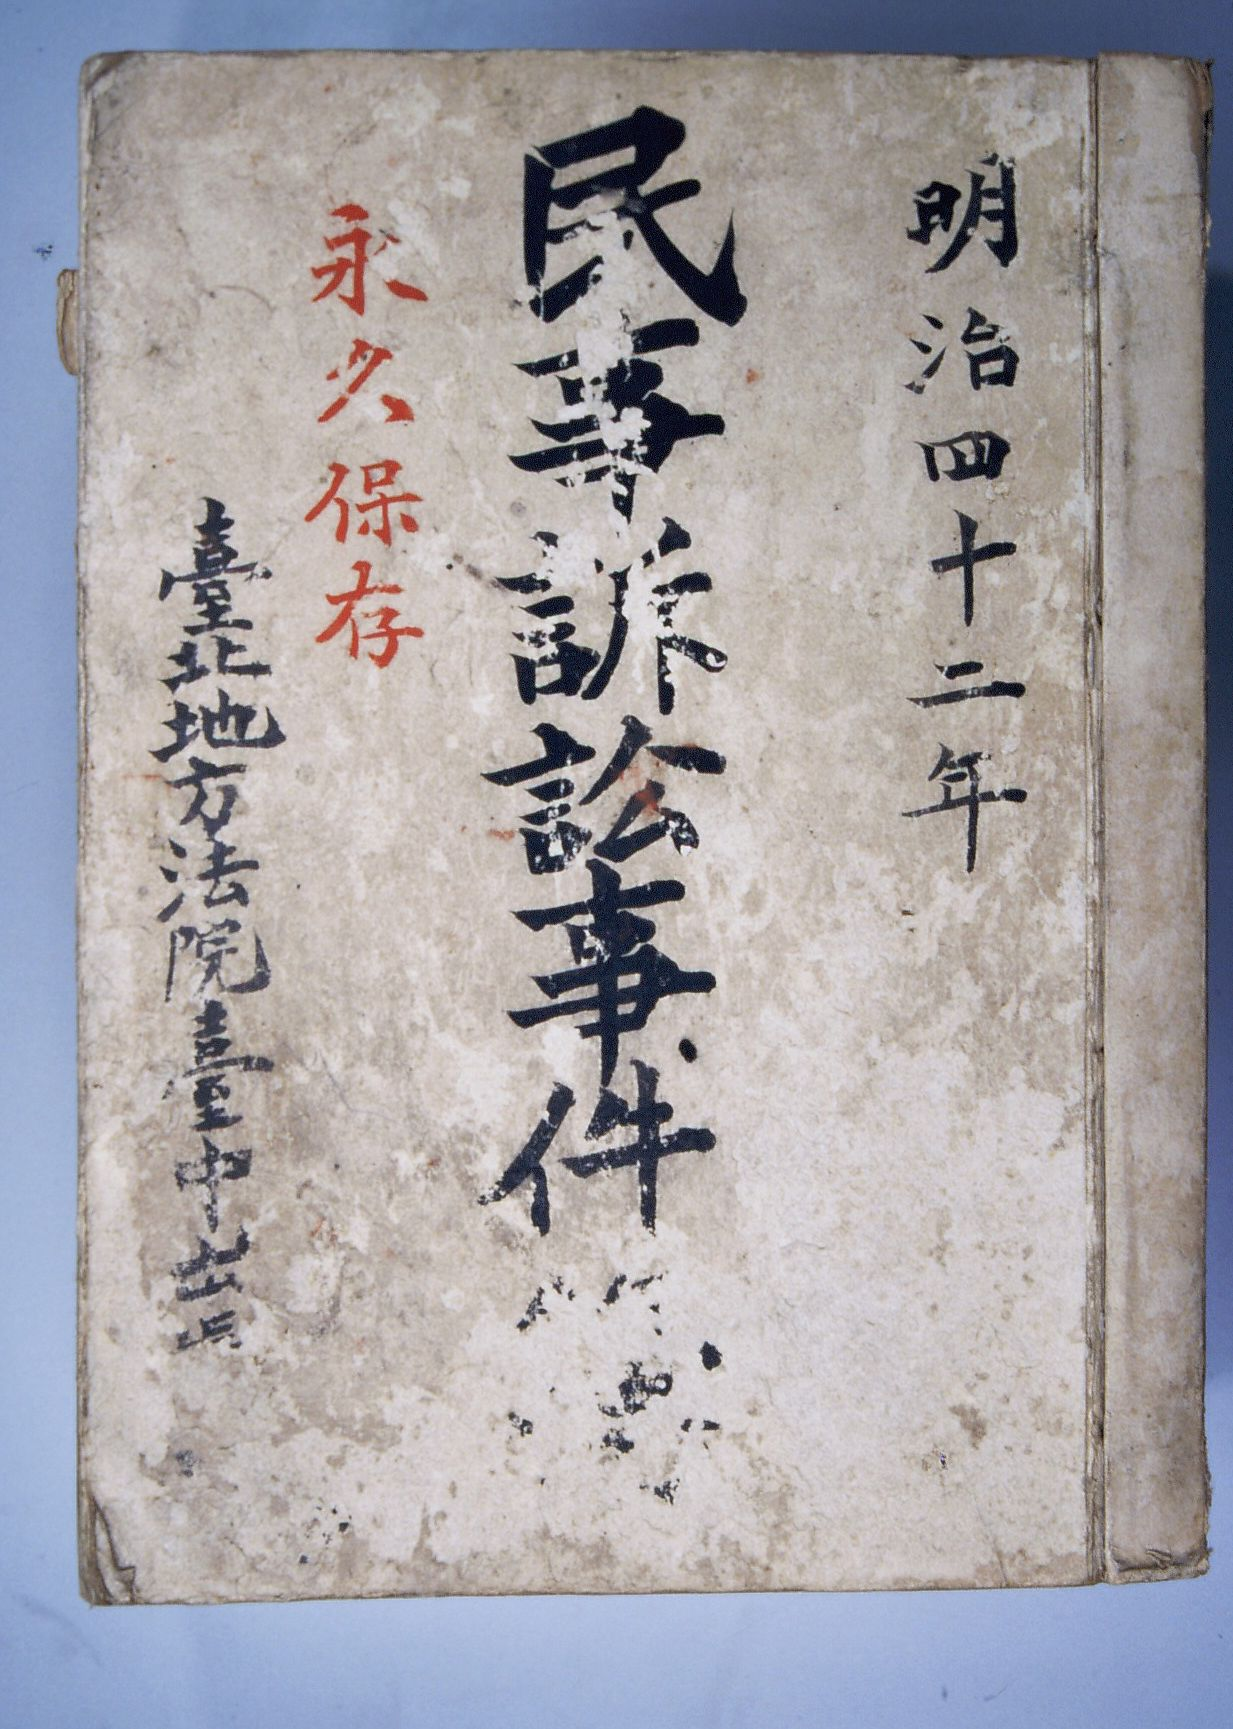 明治四十二年
民事訴訟事件
永久保存
臺北地方法院臺中出